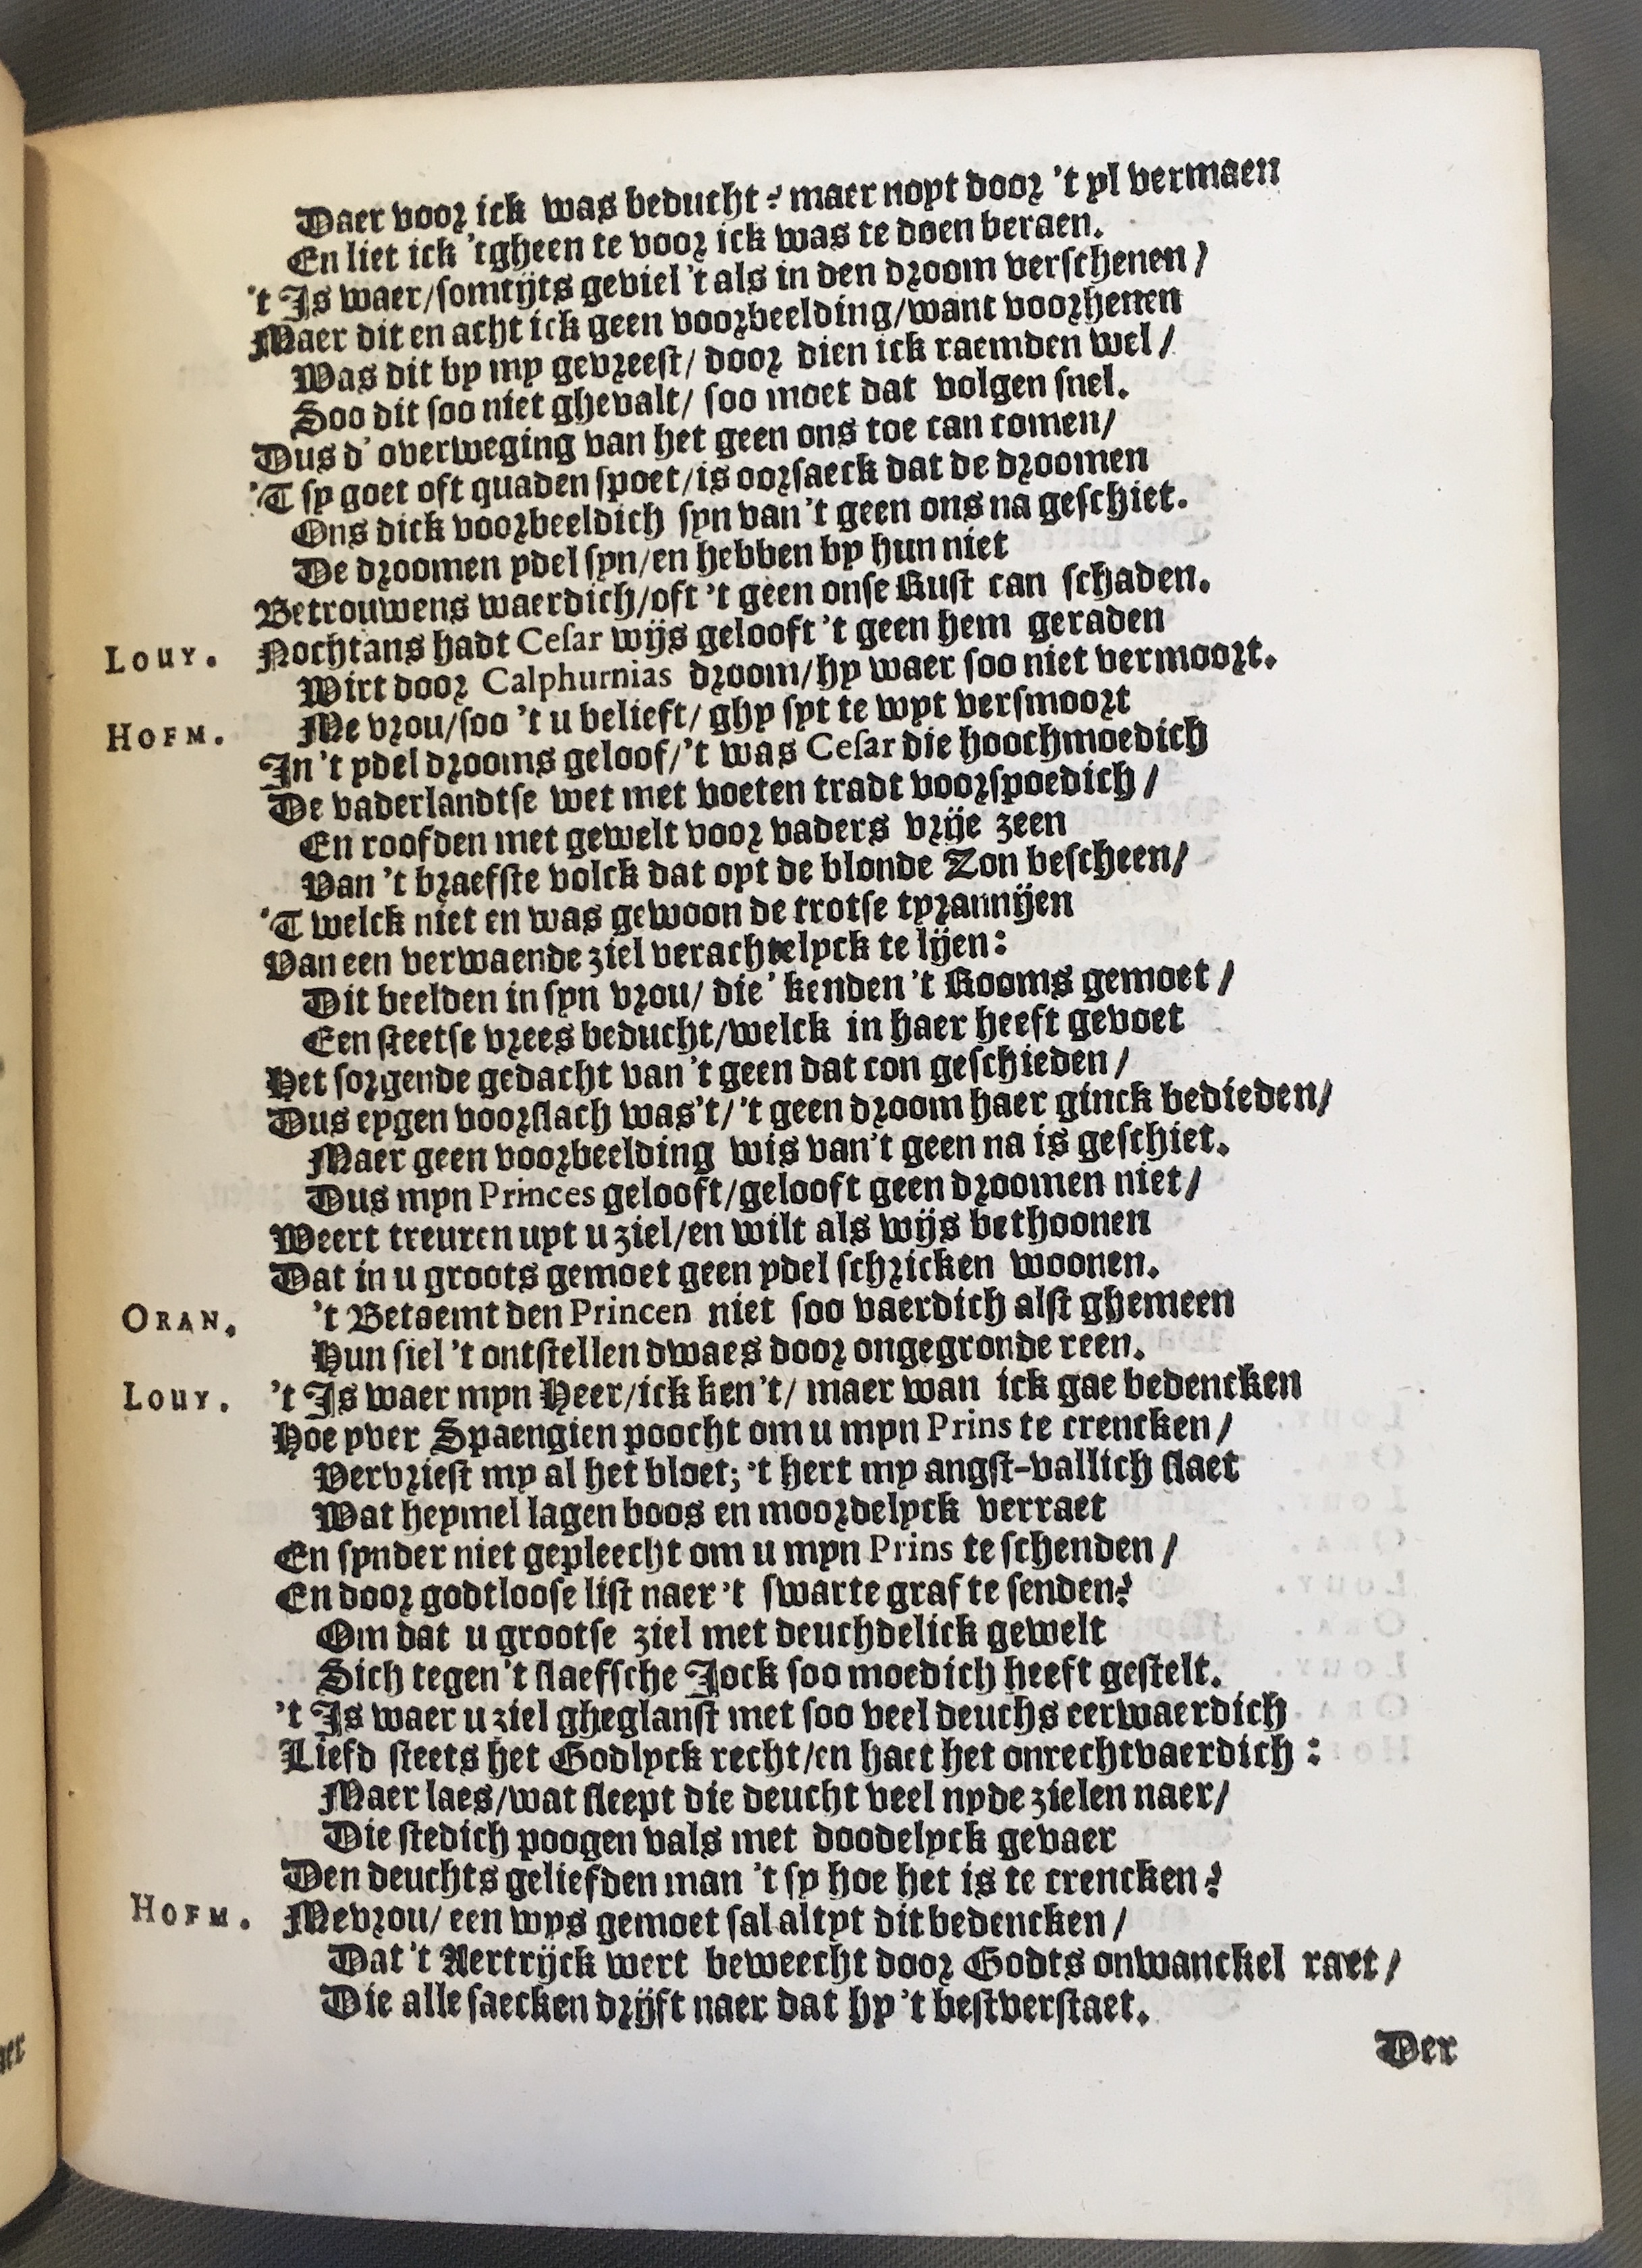 Daer voor ick was beducht? maer noyt door 't yl vermaen
En liet ick 'tgheen te voor ick was te doen beraen.
't Is waer/somtijts geviel 't als in den droom verschenen/
Maer dit en acht ick geen voorbeelding/want voorhenen
Was dit by my gevreest/ door dien ick raemden wel/
Soo dit soo niet ghevalt/ soo moet dat volgen snel.
Dus d' overweging van het geen ons toe can comen/
'T sy goet oft quaden spoet/is oorsaeck dat de droomen
Ons dick voorbeeldich syn van 't geen ons na geschiet.
De droomen ydel syn/en hebben by hun niet
Betrouwens waerdich/oft 't geen onse Rust can schaden.
LOUY. Nochtans hadt Cesar wijs gelooft 't geen hem geraden
Wirt door Calphurnias droom/hy waer soo niet vermoort.
HOFM. Me vrou/soo 't u belieft/ ghy syt te wyt versmoort
In 't ydel drooms geloof/'t was Cesar die hoochmoedich
De vaderlandtse wet met voeten tradt voorspoedich/
En roofden met gewelt voor vaders vrije zeen
Van 't braefste volck dat oyt de blonde Zon bescheen/
'T welck niet en was gewoon de trotse tyrannijen
Van een verwaende ziel verachtelyck te lijen:
Dit beelden in syn vrou/ die' kenden 't Rooms gemoet/
Een steetse vrees beducht/welck in haer heeft gevoet
Het sorgende gedacht van 't geen dat con geschieden/
Dus eygen voorslach was't/'t geen droom haer ginck bedieden/
Maer geen voorbeelding wis van't geen na is geschiet.
Dus myn Princes gelooft/gelooft geen droomen niet/
Weert treuren uyt u ziel/en wilt als wijs bethoonen
Dat in u groots gemoet geen ydel schricken woonen.
ORAN. 't Betaemt den Princen niet soo vaerdich alst ghemeen
Hun siel 't ontstellen dwaes door ongegronde reen.
LOUY. 't Is waer myn Heer/ick ken't/ maer wan ick gae bedencken
Hoe yver Spaengien poocht om u myn Prins te crencken/
Vervriest my al het bloet; 't hert my angst-vallich slaet
Wat heymel lagen boos en moordelyck verraet
En synder niet gepleecht om u myn Prins te schenden/
En door godtloose list naer 't swarte graf te senden?
Om dat u grootse ziel met deuchdelick gewelt
Sich tegen 't slaefsche Jock soo moedich heeft gestelt.
't Is waer u ziel gheglanst met soo veel deuchs eerwaerdich
Liefd steets het Godlyck recht/en haet het onrechtvaerdich:
Maer laes/wat sleept die deucht veel nyde zielen naer/
Die stedich poogen vals met doodelyck gevaer
Den deuchts geliefden man 't sy hoe het is te crencken?
HOFM. Mevrou/ een wys gemoet sal altyt dit bedencken/
Dat 't Aertrijck wert beweecht door Godts onwanckel raet/
Die alle saecken drijft naer dat hy 't best verstaet.
Der